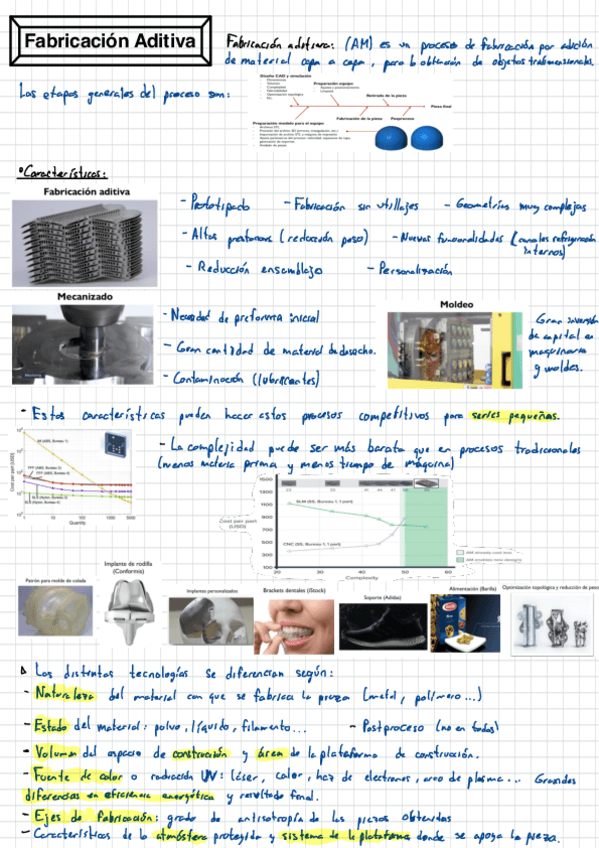 Fabricación Aditiva
Fabricación aditiva: (AM) es un proceso de fabricación por adición
de material capa a capa, para la obtención de objetos tridimensionales.
Las etapas generales del proceso son:
Diseño CAD y simulación
Preparación equipo
Retirada de la pieza
Pieza final
Preparación modelo para el equipo
Fabricación de la pieza
Postproceso
• Características:
Fabricación aditiva
- Prototipado - Fabricación sin utillajes - Geometrías muy complejas
- Altas prestaciones (reducción peso) - Nuevas funcionalidades (canales refrigeración
internos)
- Reducción ensamblaje - Personalización
Mecanizado
- Necesidad de preforma inicial
- Gran cantidad de material de desecho.
- Contaminación (lubricantes)
Moldeo
Gran inversión
de capital en
maquinaria
y moldes.
- Estas características pueden hacer estos procesos competitivos para series pequeñas.
- La complejidad puede ser más barata que en procesos tradicionales
(menos materia prima y menos tiempo de máquina)
Cost per part (USD)
Quantity
1500
1300
1100
900
700
500
300
100
SLM (SS, Bureau 1, 1 part)
Cost per part
(USD)
CNC (SS, Bureau 1, 1 part)
20 30 40 50 60
Complexity
Patrón para molde de colada
Implante de rodilla
(Conformis)
Implantes personalizados
Brackets dentales (iStock)
Soporte (Adidas)
Alimentación (Barilla)
Optimización topológica y reducción de peso
Las distintas tecnologías se diferencian según:
- Naturaleza del material con que se fabrica la pieza (metal, polímero...)
- Estado del material: polvo, líquido, filamento... - Postproceso (no en todas)
- Volumen del espacio de construcción y área de la plataforma de construcción.
- Fuente de calor o radiación UV: láser, calor, haz de electrones, arco de plasma... Grandes
diferencias en eficiencia energética y resultado final.
- Ejes de fabricación: grado de anisotropía de las piezas obtenidas
- Características de la atmósfera protegida y sistema de la plataforma donde se apoya la pieza.